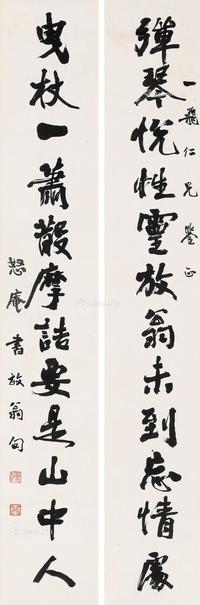 一飛仁兄鑒正
彈琴悅性靈放翁未到忘情處
曳杖一蕭散摩詰要是山中人
怒庵書放翁句